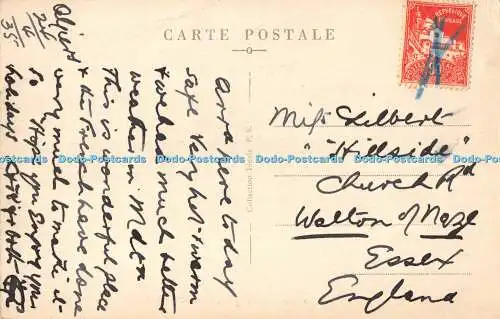 CARTE POSTALE
Algiers
24
4
35
Arr. here today
safe. Very hot & warm
& we had much better
weather in Malta
This is wonderful place
& the French have done
very much to make it
So Hope you Enjoy your
holidays
Collection
REPUBLIQUE
Miss Gilbert
"Hillside"
Church Rd
Walton of Naze
Essex
England
Dodo-Postcards Dodo-Postcards Dodo-Postcards Dodo-Postcards Dodo-Postcards Dodo-Postcards